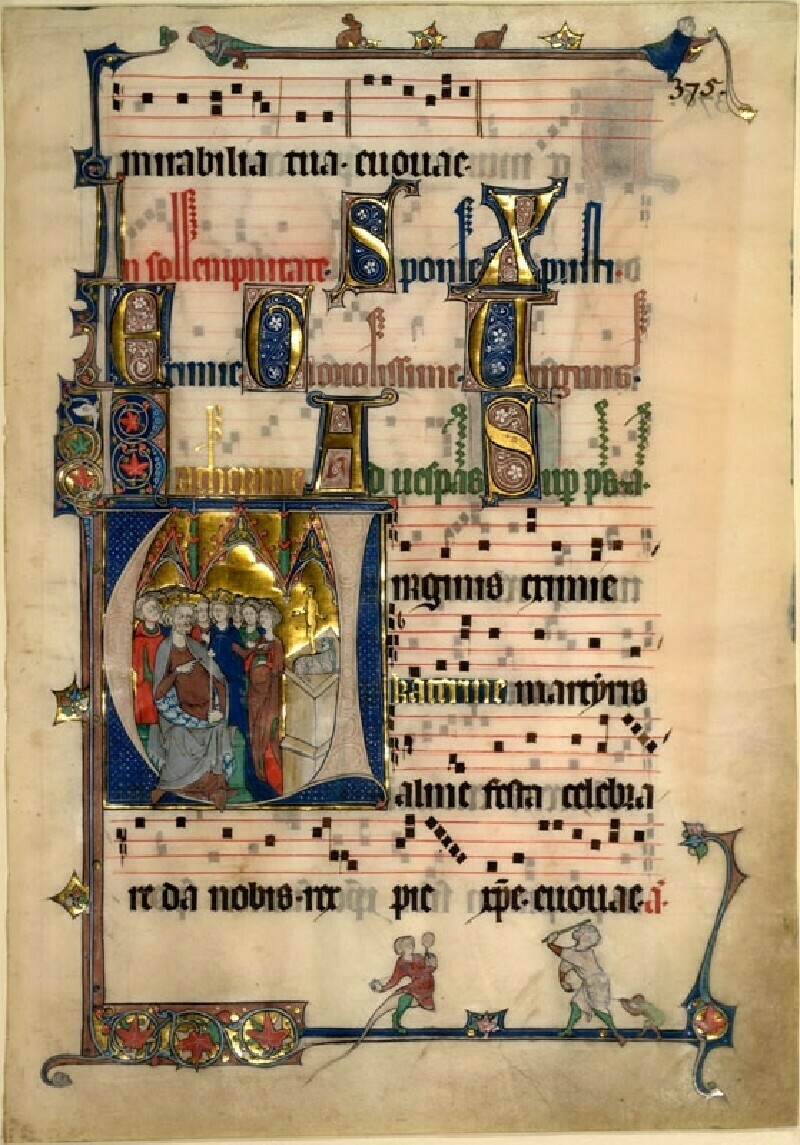 375.
mirabilia tua. euouae.
In sollempnitate. Sponse Xpristi.
Eximie Gloriosissime Virginis.
Katherine Ad uespas sup psa.
Virginis eximie
katerine martyris
alme festa celebra
re da nobis rex pie xpe. euouae. a.